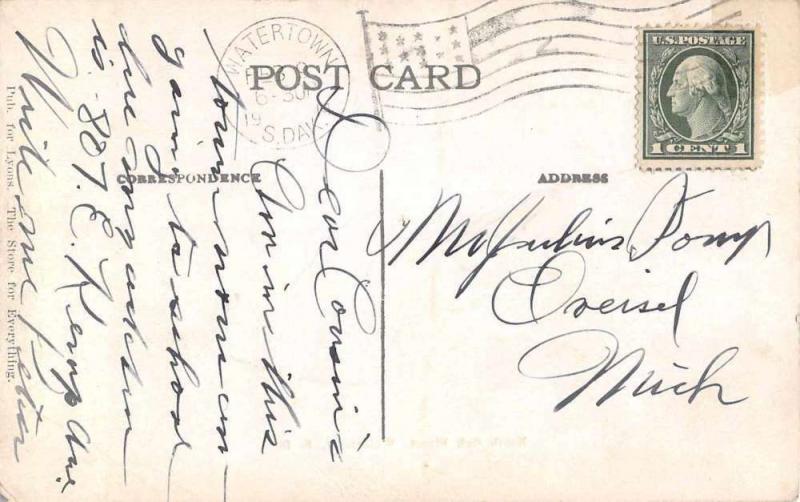 WATERTOWN
6-30
19
S. DAK.
POST CARD
U.S. POSTAGE
1 CENT 1
CORRESPONDENCE
ADDRESS
Dear Cousin's
Am in this
town now am
going to school
here my address
is 807. E. Kemp Ave.
Write me
Julius
Overisel
Mich
Pub. for Lyons. The Store for Everything.